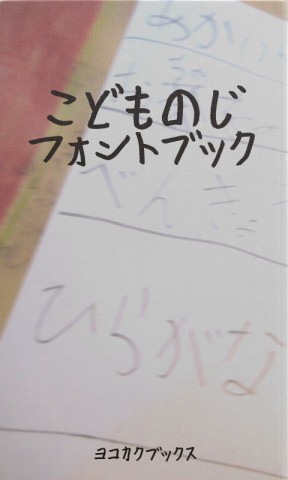 こどものじ
フォントブック
べんき
ひらがな
ヨコカクブックス